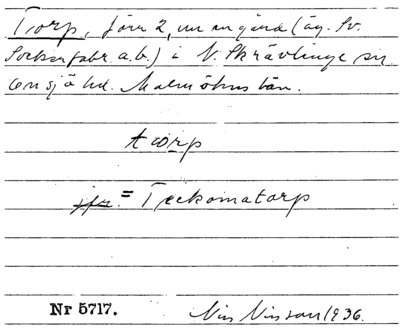 Torp, förr 2, nu en gård (äg. Sv.
Sockerfabr. a.b.) i V. Skrävlinge sn
Oxie hd. Malmöhus län.
tɷrp
jfr = Teckomatorp
Nr 5717. Nils Nilsson 1936.